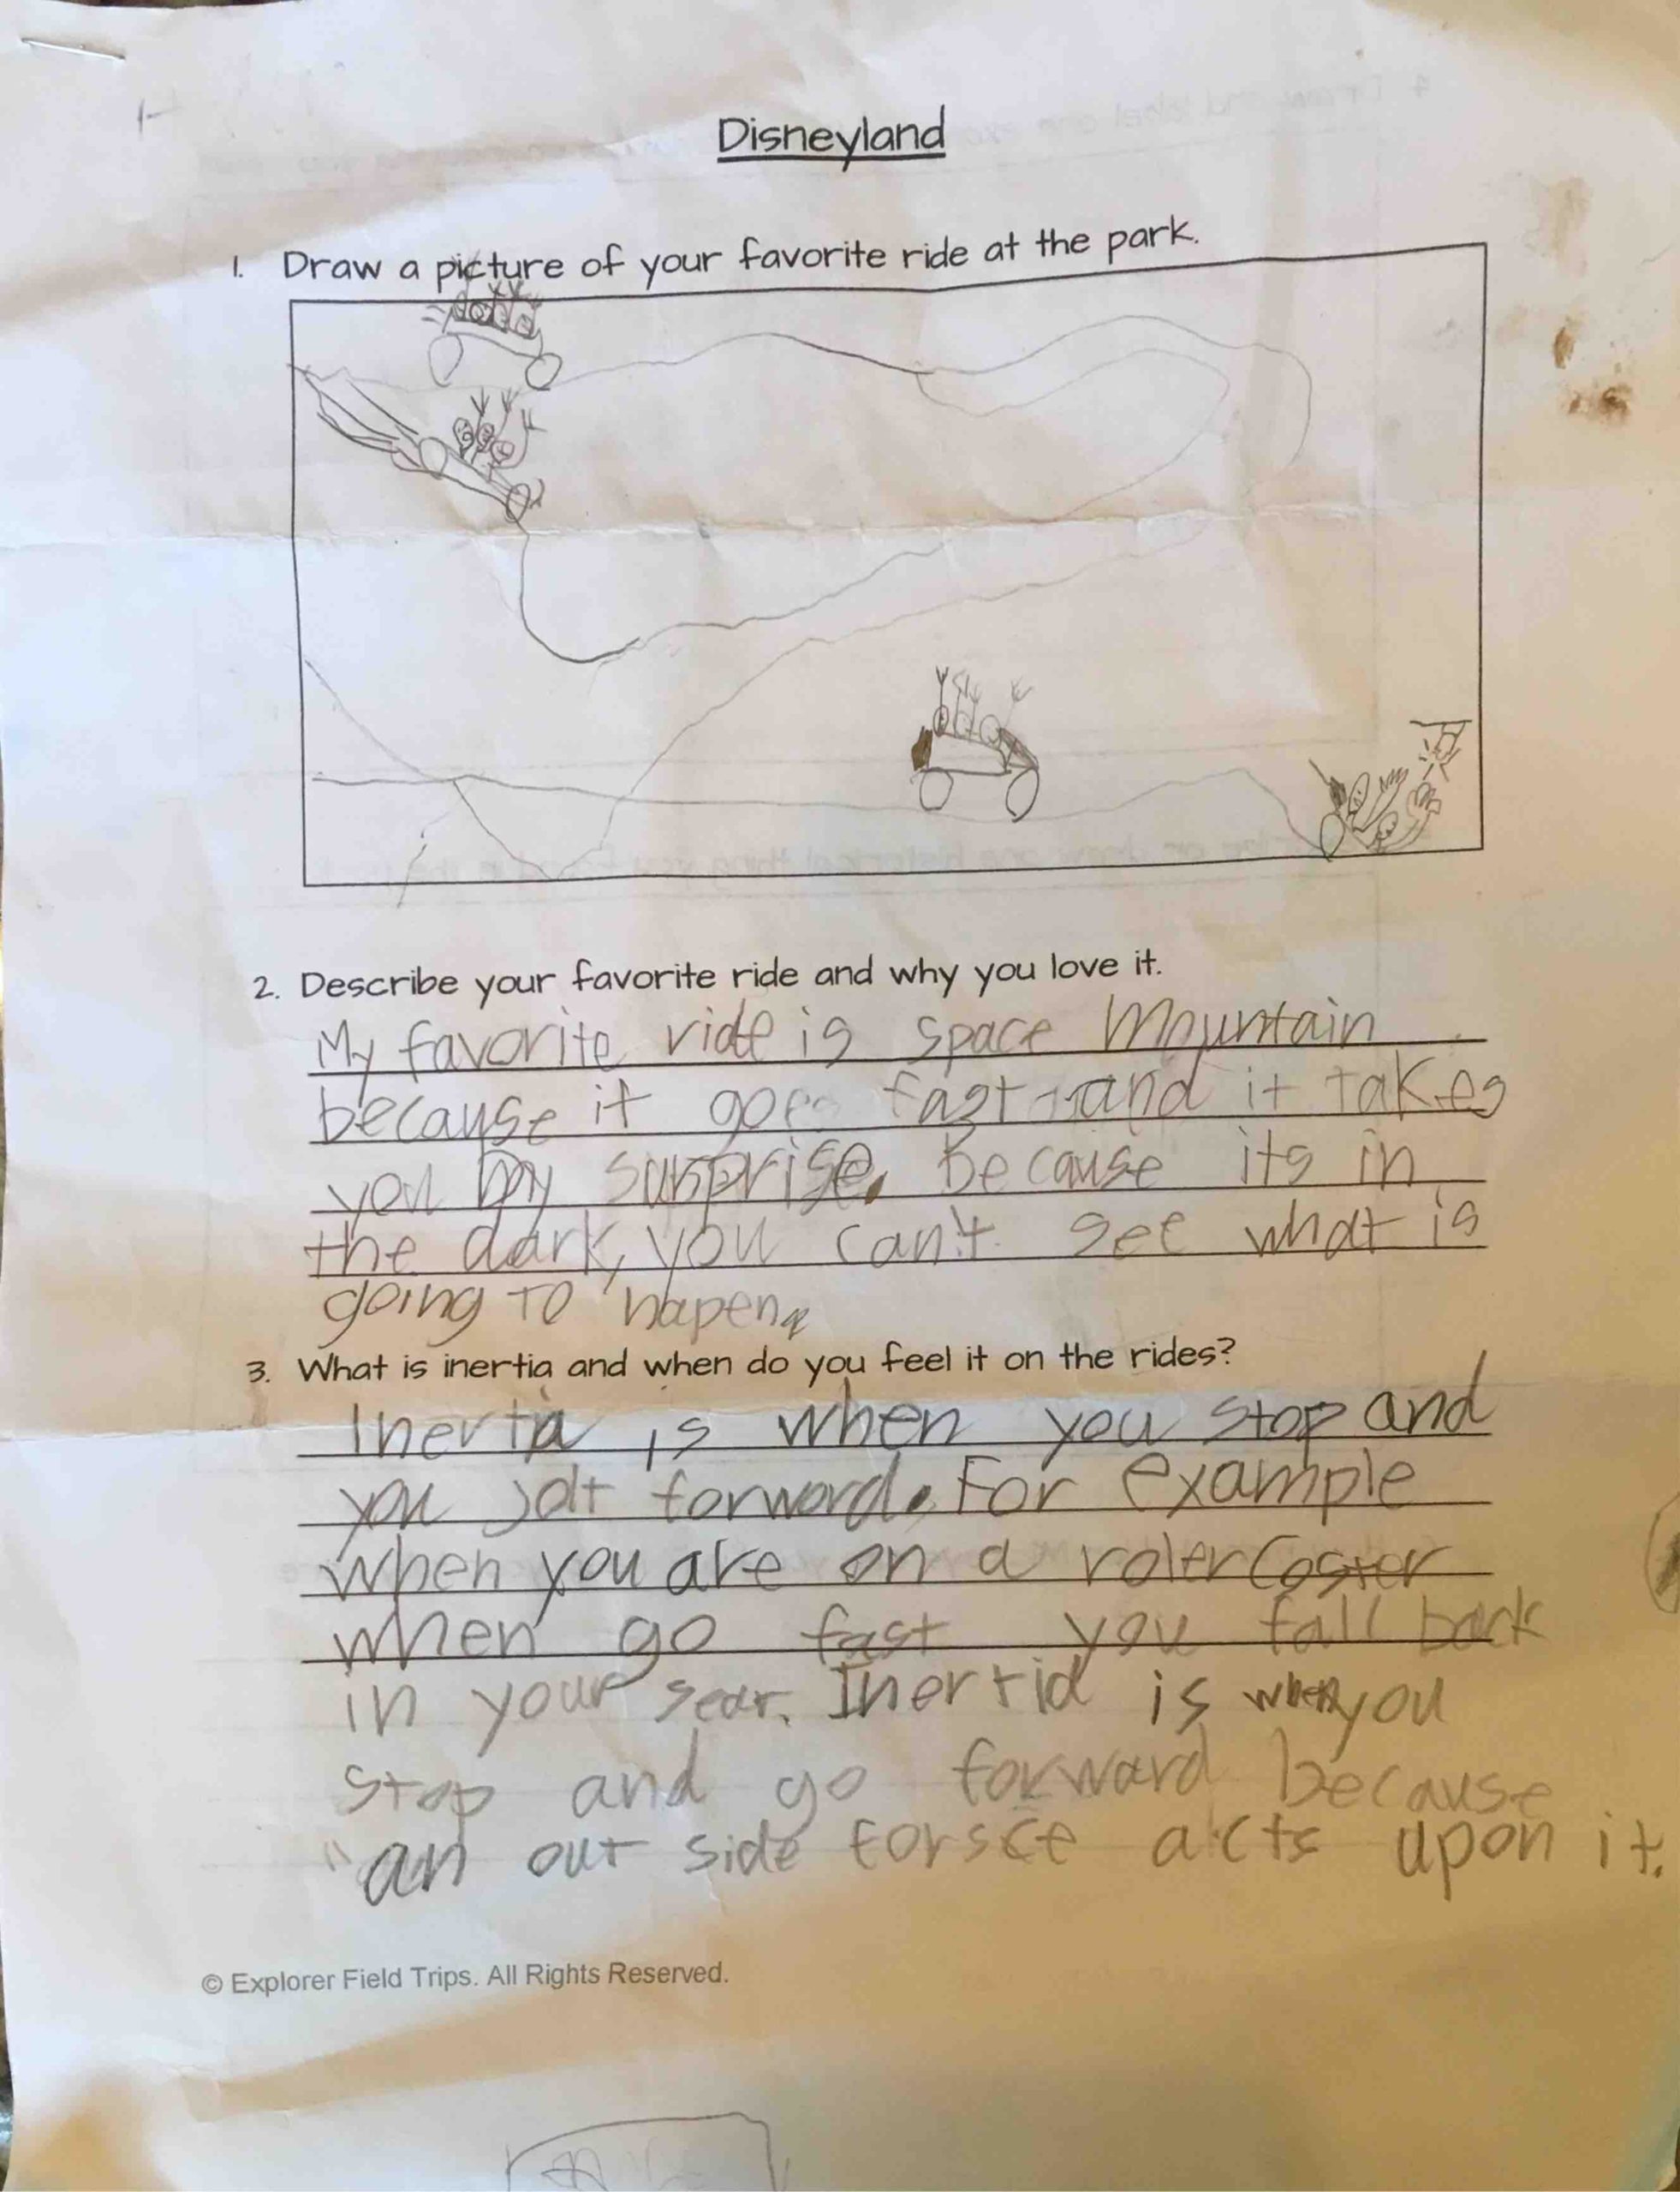 Disneyland
1. Draw a picture of your favorite ride at the park.
2. Describe your favorite ride and why you love it.
My favorite ride is space Mountain
because it goes fast and it takes
you by surprise. Because its in
the dark, you can't see what is
going To hapen.
3. What is inertia and when do you feel it on the rides?
Inertia is when you stop and
you jolt forword. For example
when you are on a roler Coster
when go fast you fall back
in your seat. Inertia is when you
stop and go forward because
an out side forsce acts upon it.
© Explorer Field Trips. All Rights Reserved.